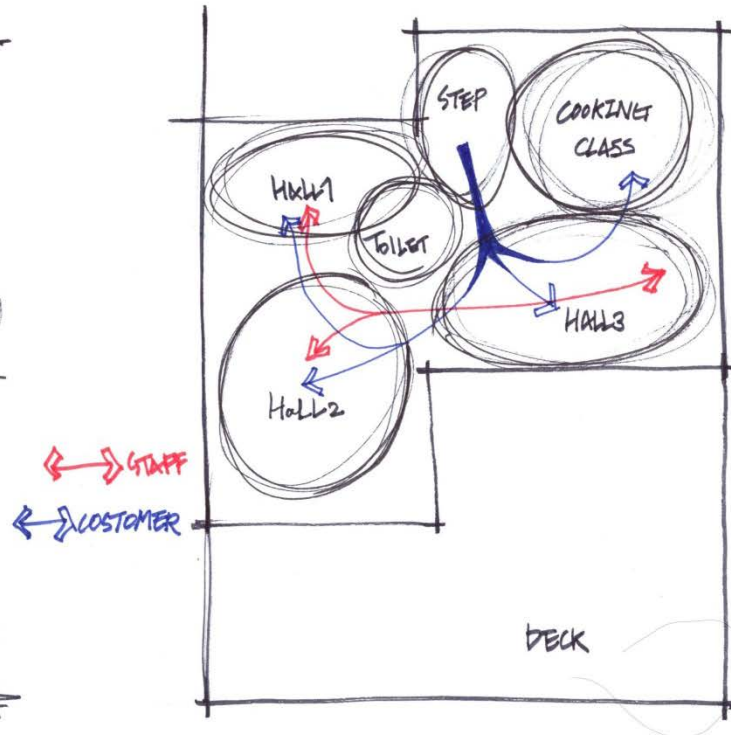 STEP
COOKING
CLASS
HALL1
TOILET
HALL3
HALL2
STAFF
COSTOMER
DECK